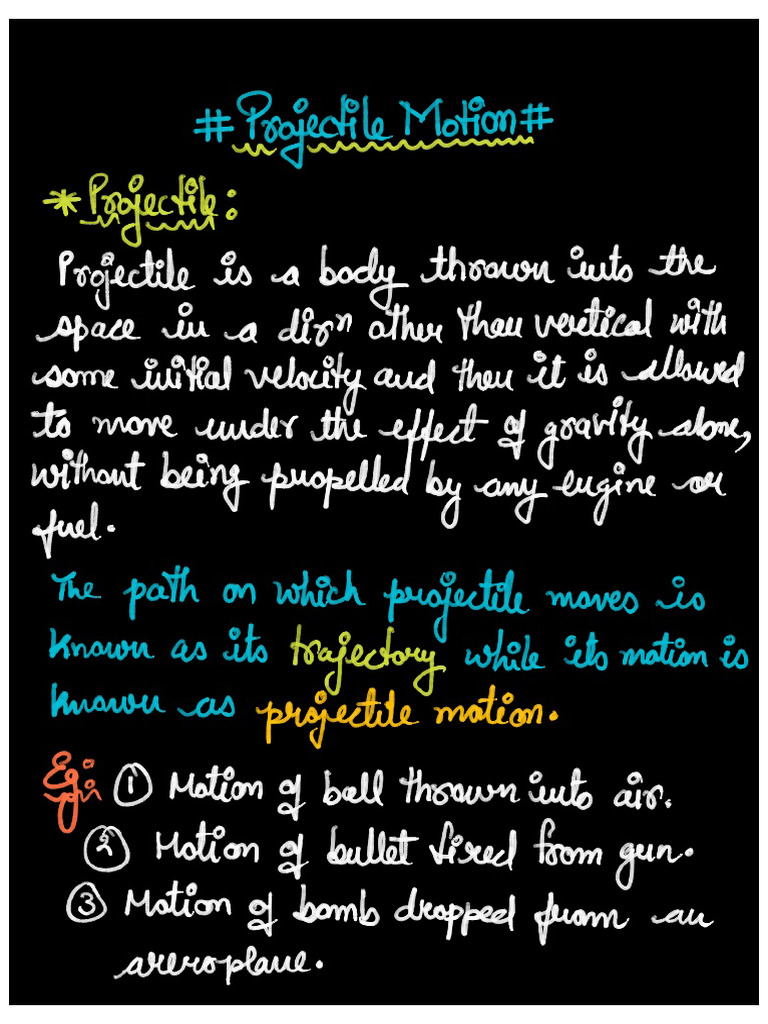 # Projectile Motion #
* Projectile:
Projectile is a body thrown into the
space in a dirⁿ other than vertical with
some initial velocity and then it is allowed
to move under the effect of gravity alone,
without being propelled by any engine or
fuel.
The path on which projectile moves is
known as its trajectory while its motion is
known as projectile motion.
Eg: ① Motion of ball thrown into air.
② Motion of bullet fired from gun.
③ Motion of bomb dropped from an
areroplane.